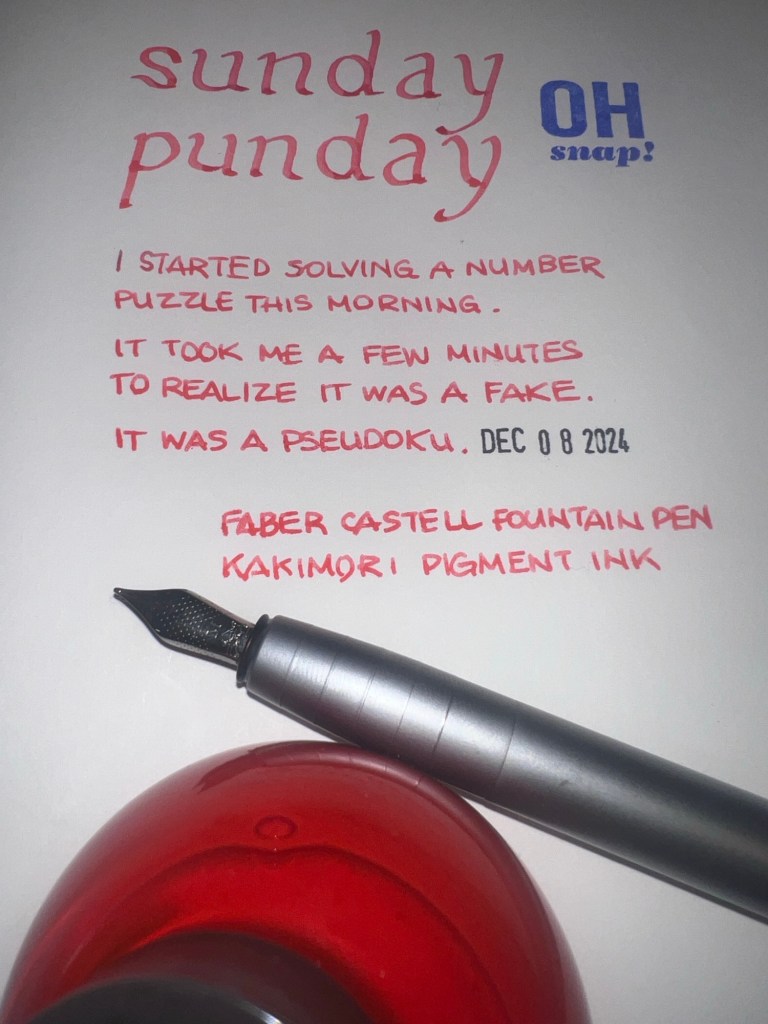 sunday
punday
OH
snap!
I STARTED SOLVING A NUMBER
PUZZLE THIS MORNING.
IT TOOK ME A FEW MINUTES
TO REALIZE IT WAS A FAKE.
IT WAS A PSEUDOKU. DEC 08 2024
FABER CASTELL FOUNTAIN PEN
KAKIMORI PIGMENT INK